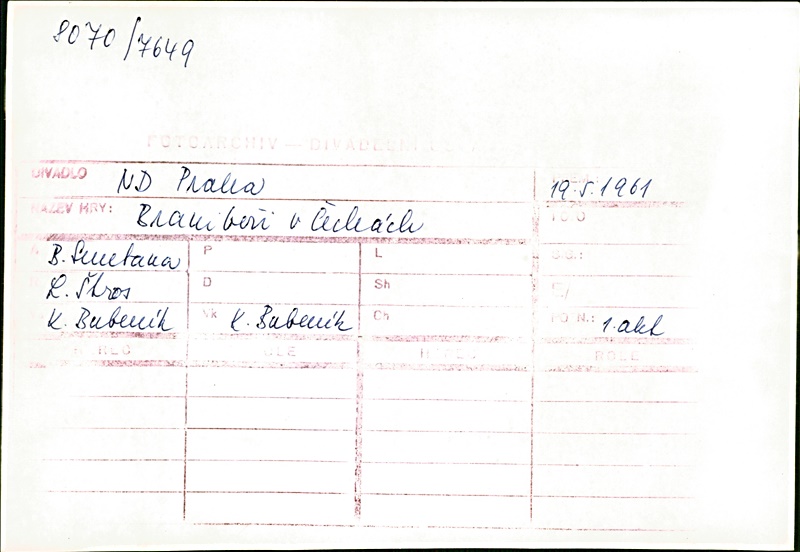 8070/7649
FOTOARCHIV — DIVADELNÍ
DIVADLO ND Praha 19.5.1961
NÁZEV HRY: Braniboři v Čechách
A B. Smetana P L
L. Štros D Sh
K. Bubeník Vk K. Bubeník Ch PO N.: 1. akt
HEREC ROLE HEREC ROLE